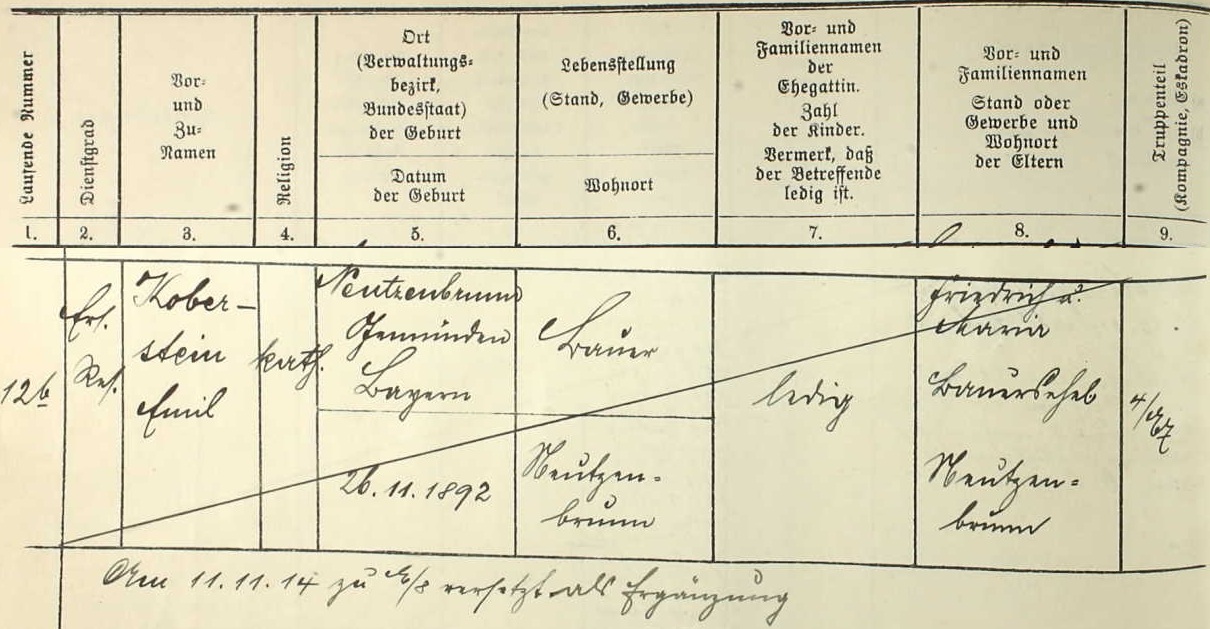 Laufende Nummer
Dienstgrad
Vor-
und
Zu-
Namen
Religion
Ort
(Verwaltungs-
bezirk,
Bundesstaat)
der Geburt
Datum
der Geburt
Lebensstellung
(Stand, Gewerbe)
Wohnort
Vor- und
Familiennamen
der
Ehegattin.
Zahl
der Kinder.
Vermerk, daß
der Betreffende
ledig ist.
Vor- und
Familiennamen
Stand oder
Gewerbe und
Wohnort
der Eltern
Truppenteil
(Kompagnie, Eskadron)
1. 2. 3. 4. 5. 6. 7. 8. 9.
126
Ers.
Res.
Kober-
stein
Emil
kath.
Neutzenbrunn
Gemünden
Bayern
26.11.1892
Bauer
Neutzen-
brunn
ledig
Friedrich u.
Maria
Bauersehel
Neutzen-
brunn
Am 11.11.14 zu versetzt als Ergänzung